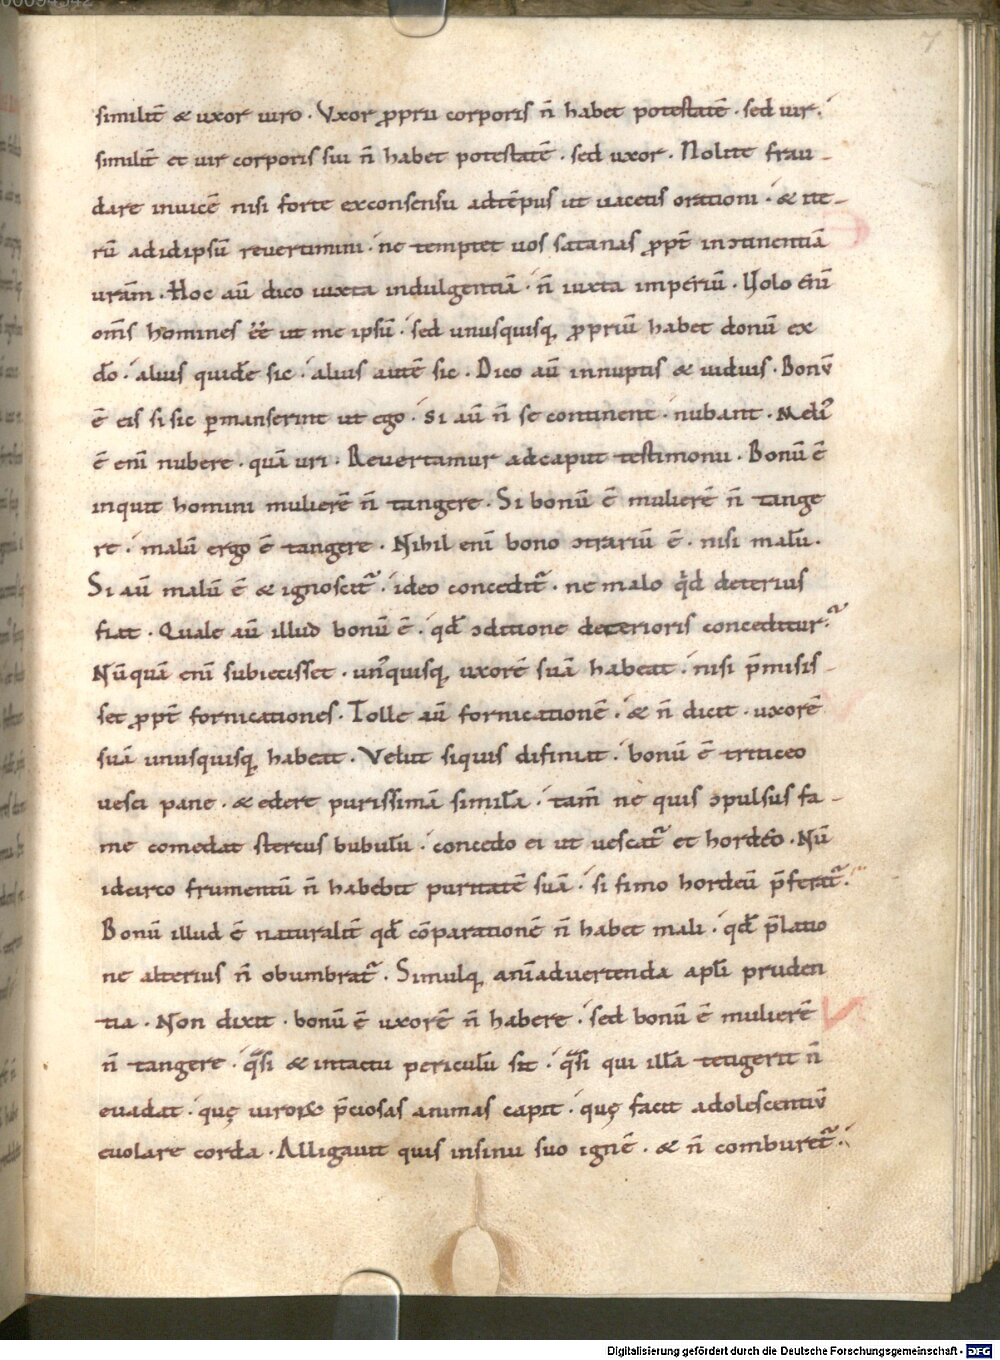 7
similit̄ & uxor uiro · Vxor ꝓprii corporis n̄ habet potestatē · sed uir ·
similit̄ et uir corporis sui n̄ habet potestatē · sed uxor · Nolite frau-
dare inuicē nisi forte exconsensu adtēpus ut uacetis orationi · & ite-
rū adidipsū reuertimini · ne temptet uos satanas ꝓpt̄ inↄtinentiā
uram̄ · Hoc aū dico iuxta indulgentiā · n̄ iuxta imperiū · Uolo enī
om̄s homines ee᷒ ut me ipsū · sed unusquisq, ꝓpriū habet donū ex
dō · alius quidē sic · alius autē sic · Dico aū innuptis & uiduis · Bonū
ē eis si sic ꝑmanserint ut ego · si aū n̄ se continent · nubant · Meliꝰ
ē enī nubere · quā uri · Reuertamur adcaput testimonii · Bonū ē
inquit homini mulierē n̄ tangere · Si bonū ē mulierē n̄ tange
re · malū ergo ē tangere · Nihil enī bono ↄtrariū ē · nisi malū ·
Si aū malū ē & ignoscit᷑ · ideo concedit᷑ · ne malo qd̄ deterius
fiat · Quale aū illud bonū ē · qd̄ ↄditione deterioris conceditur ·
Nūquā enī subiecisset · unꝰquisq, uxorē suā habeat · nisi p̄misis-
set ꝓpt̄ fornicationes · Tolle aū fornicationē · & n̄ dicit · uxorē
suā unusquisq, habeat · Velut siquis difiniat · bonū ē triticeo
uesci pane · & edere purissimā similā · tam̄ ne quis ↄpulsus fa-
me comedat stercus bubulū · concedo ei ut uescat᷑ et hordeo · Nū
idcirco frumentū n̄ habebit puritatē suā · si fimo hordeū p̄ferat᷑ ·
Bonū illud ē naturalit̄ qd̄ cōparationē n̄ habet mali · qd̄ p̄latio
ne alterius n̄ obumbrat᷑ · Simulq, anīaduertenda apl̄i pruden
tia · Non dixit · bonū ē uxorē n̄ habere · sed bonū ē mulierē
n̄ tangere · q̄si & intactu periculū sit · q̄si qui illā tetigerit n̄
euadat · quę uiroꝝ p̄ciosas animas capit · quę facit adolescentiū
euolare corda · Alligauit quis insinu suo ignē · & n̄ comburet᷑ ·
Digitalisierung gefördert durch die Deutsche Forschungsgemeinschaft - DFG